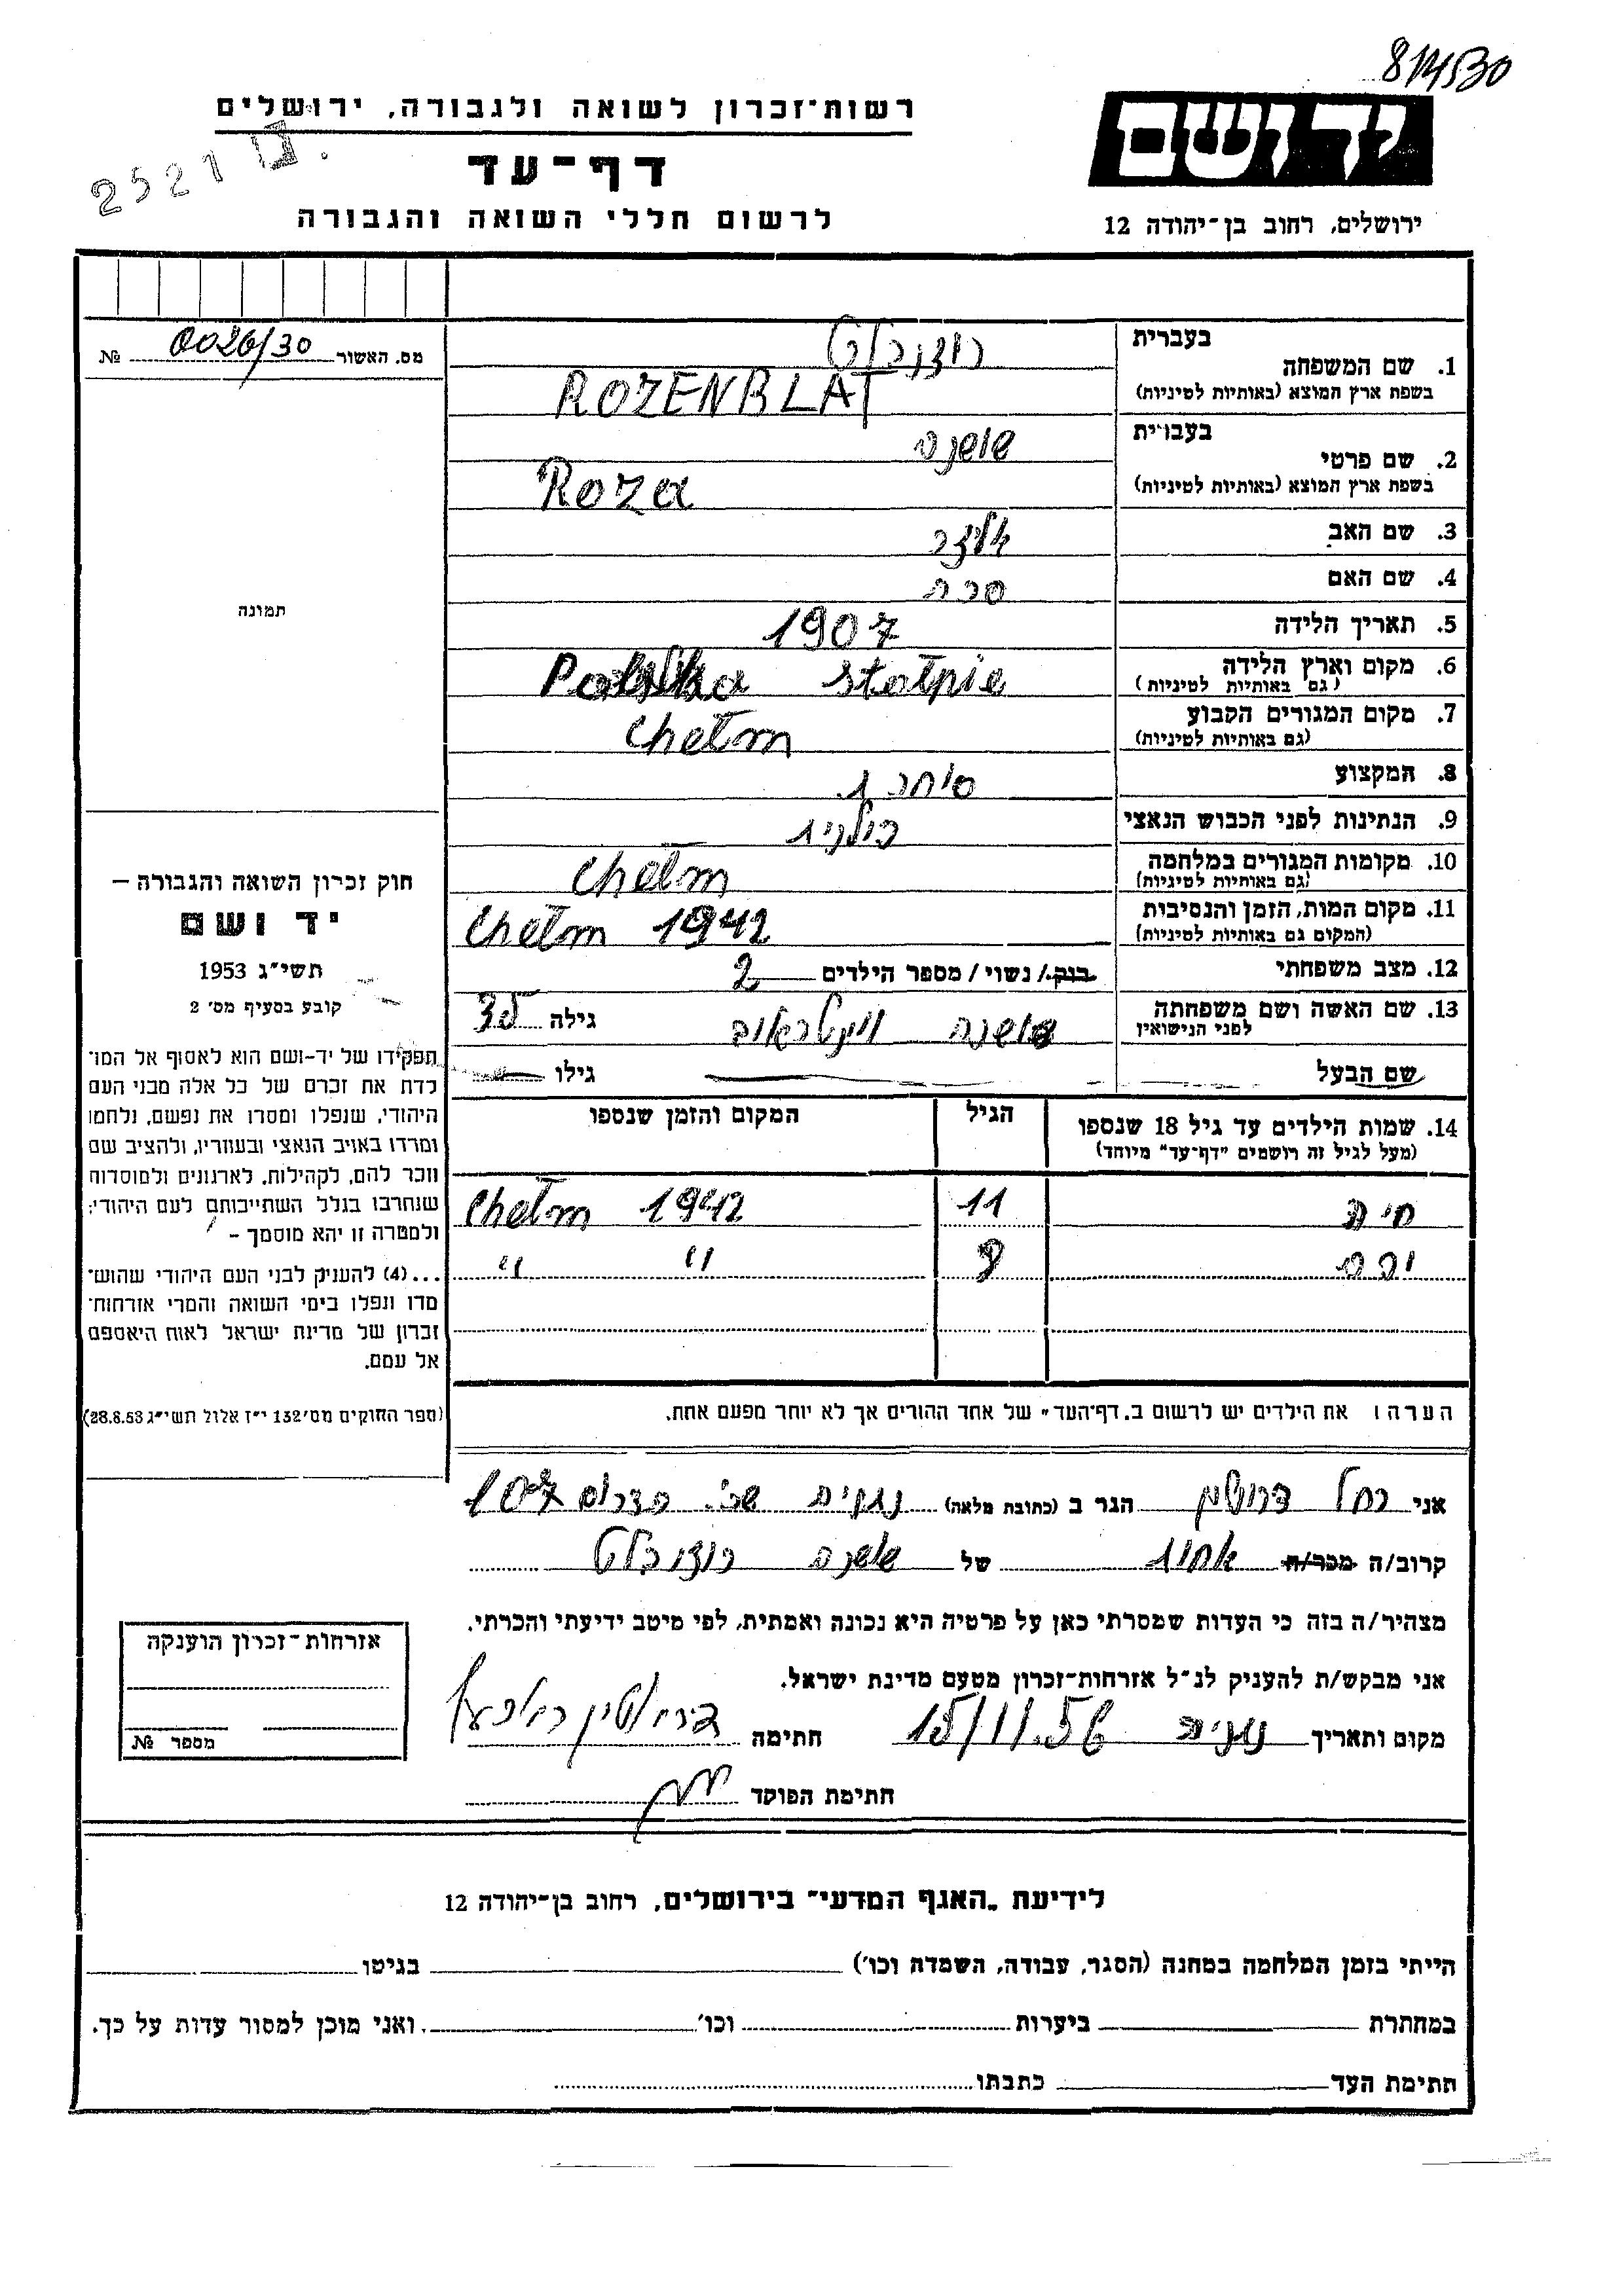 814530
רשות-זכרון לשואה ולגבורה, ירושלים
יד ושם
2521
דף-עד
לרשום חללי השואה והגבורה
ירושלים, רחוב בן-יהודה 12
מס. האשור 0026/30 №
בעברית
1. שם המשפחה רוזנבלט
בשפת ארץ המוצא (באותיות לטיניות) ROZENBLAT
בעברית
2. שם פרטי שושנה
בשפת ארץ המוצא (באותיות לטיניות) Roza
3. שם האב
4. שם האם שרה
תמונה
5. תאריך הלידה 1907
6. מקום וארץ הלידה stołpie Polska
(גם באותיות לטיניות)
7. מקום המגורים הקבוע Chełm
(גם באותיות לטיניות)
8. המקצוע סוחרת
9. הנתינות לפני הכבוש הנאצי פולנית
10. מקומות המגורים במלחמה Chełm
(גם באותיות לטיניות)
11. מקום המות, הזמן והנסיבות Chełm 1942
(המקום גם באותיות לטיניות)
12. מצב משפחתי רווק / נשוי / מספר הילדים 2
13. שם האשה ושם משפחתה שושנה גילה 35
לפני הנישואין
שם הבעל גילו
14. שמות הילדים עד גיל 18 שנספו הגיל המקום והזמן שנספו
(מעל לגיל זה רושמים "דף-עד" מיוחד)
חיה 11 Chełm 1942
" "
הערה: את הילדים יש לרשום ב"דף-העד" של אחד ההורים אך לא יותר מפעם אחת.
חוק זכרון השואה והגבורה –
יד ושם
תשי"ג 1953
קובע בסעיף מס' 2
תפקידו של יד-ושם הוא לאסוף אל המו-
לדת את זכרם של כל אלה מבני העם
היהודי, שנפלו ומסרו את נפשם, נלחמו
ומרדו באויב הנאצי ובעוזריו, ולהציב שם
וזכר להם, לקהילות, לארגונים ולמוסדות
שנחרבו בגלל השתייכותם לעם היהודי;
ולמטרה זו יהא מוסמך –
...(4) להעניק לבני העם היהודי שהוש-
מדו ונפלו בימי השואה והמרי אזרחות-
זכרון של מדינת ישראל לאות היאספם
אל עמם.
(ספר החוקים מס' 132 י"ז אלול תשי"ג 28.8.53)
אני רחל הגר ב (כתובת מלאה) נתניה שכ. 107
קרוב/ה מכר/ה אחות של שושנה רוזנבלט
מצהיר/ה בזה כי העדות שמסרתי כאן על פרטיה היא נכונה ואמתית, לפי מיטב ידיעתי והכרתי.
אני מבקש/ת להעניק לנ"ל אזרחות-זכרון מטעם מדינת ישראל.
מקום ותאריך נתניה 15/11.56 חתימה
חתימת הפוקד
אזרחות-זכרון הוענקה
מספר №
לידיעת "האגף המדעי" בירושלים, רחוב בן-יהודה 12
הייתי בזמן המלחמה במחנה (הסגר, עבודה, השמדה וכו') בגיטו
במחתרת ביערות וכו' ואני מוכן למסור עדות על כך.
חתימת העד כתבתו